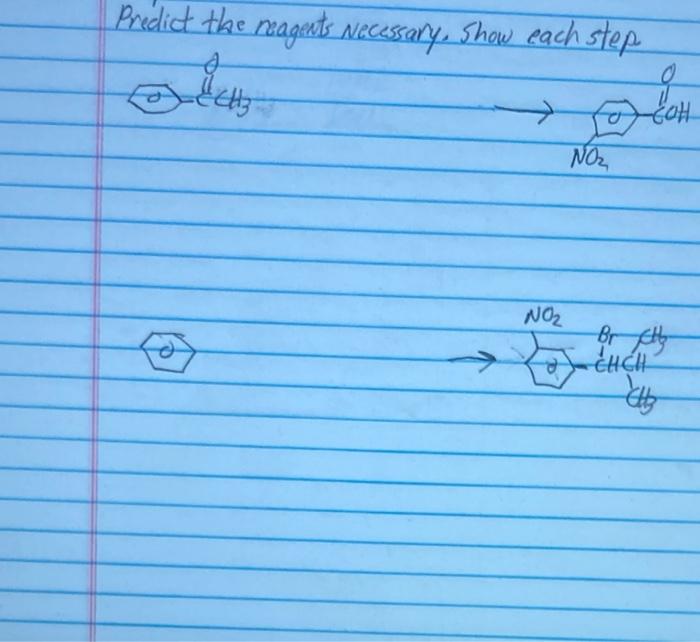 Predict the reagents necessary. Show each step
O
CCH3
→
O
COH
NO2
→
NO2
Br CH3
CHCH
CH3